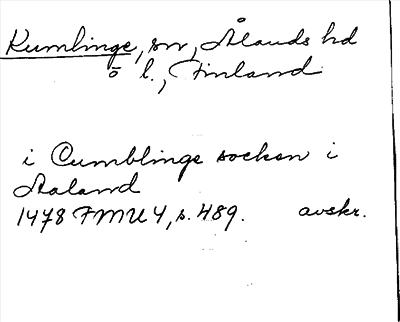 Kumlinge, sn, Ålands hd
ö l., Finland
i Cumblinge socken i
Aaland
1478 FMU 4, s. 489. avskr.